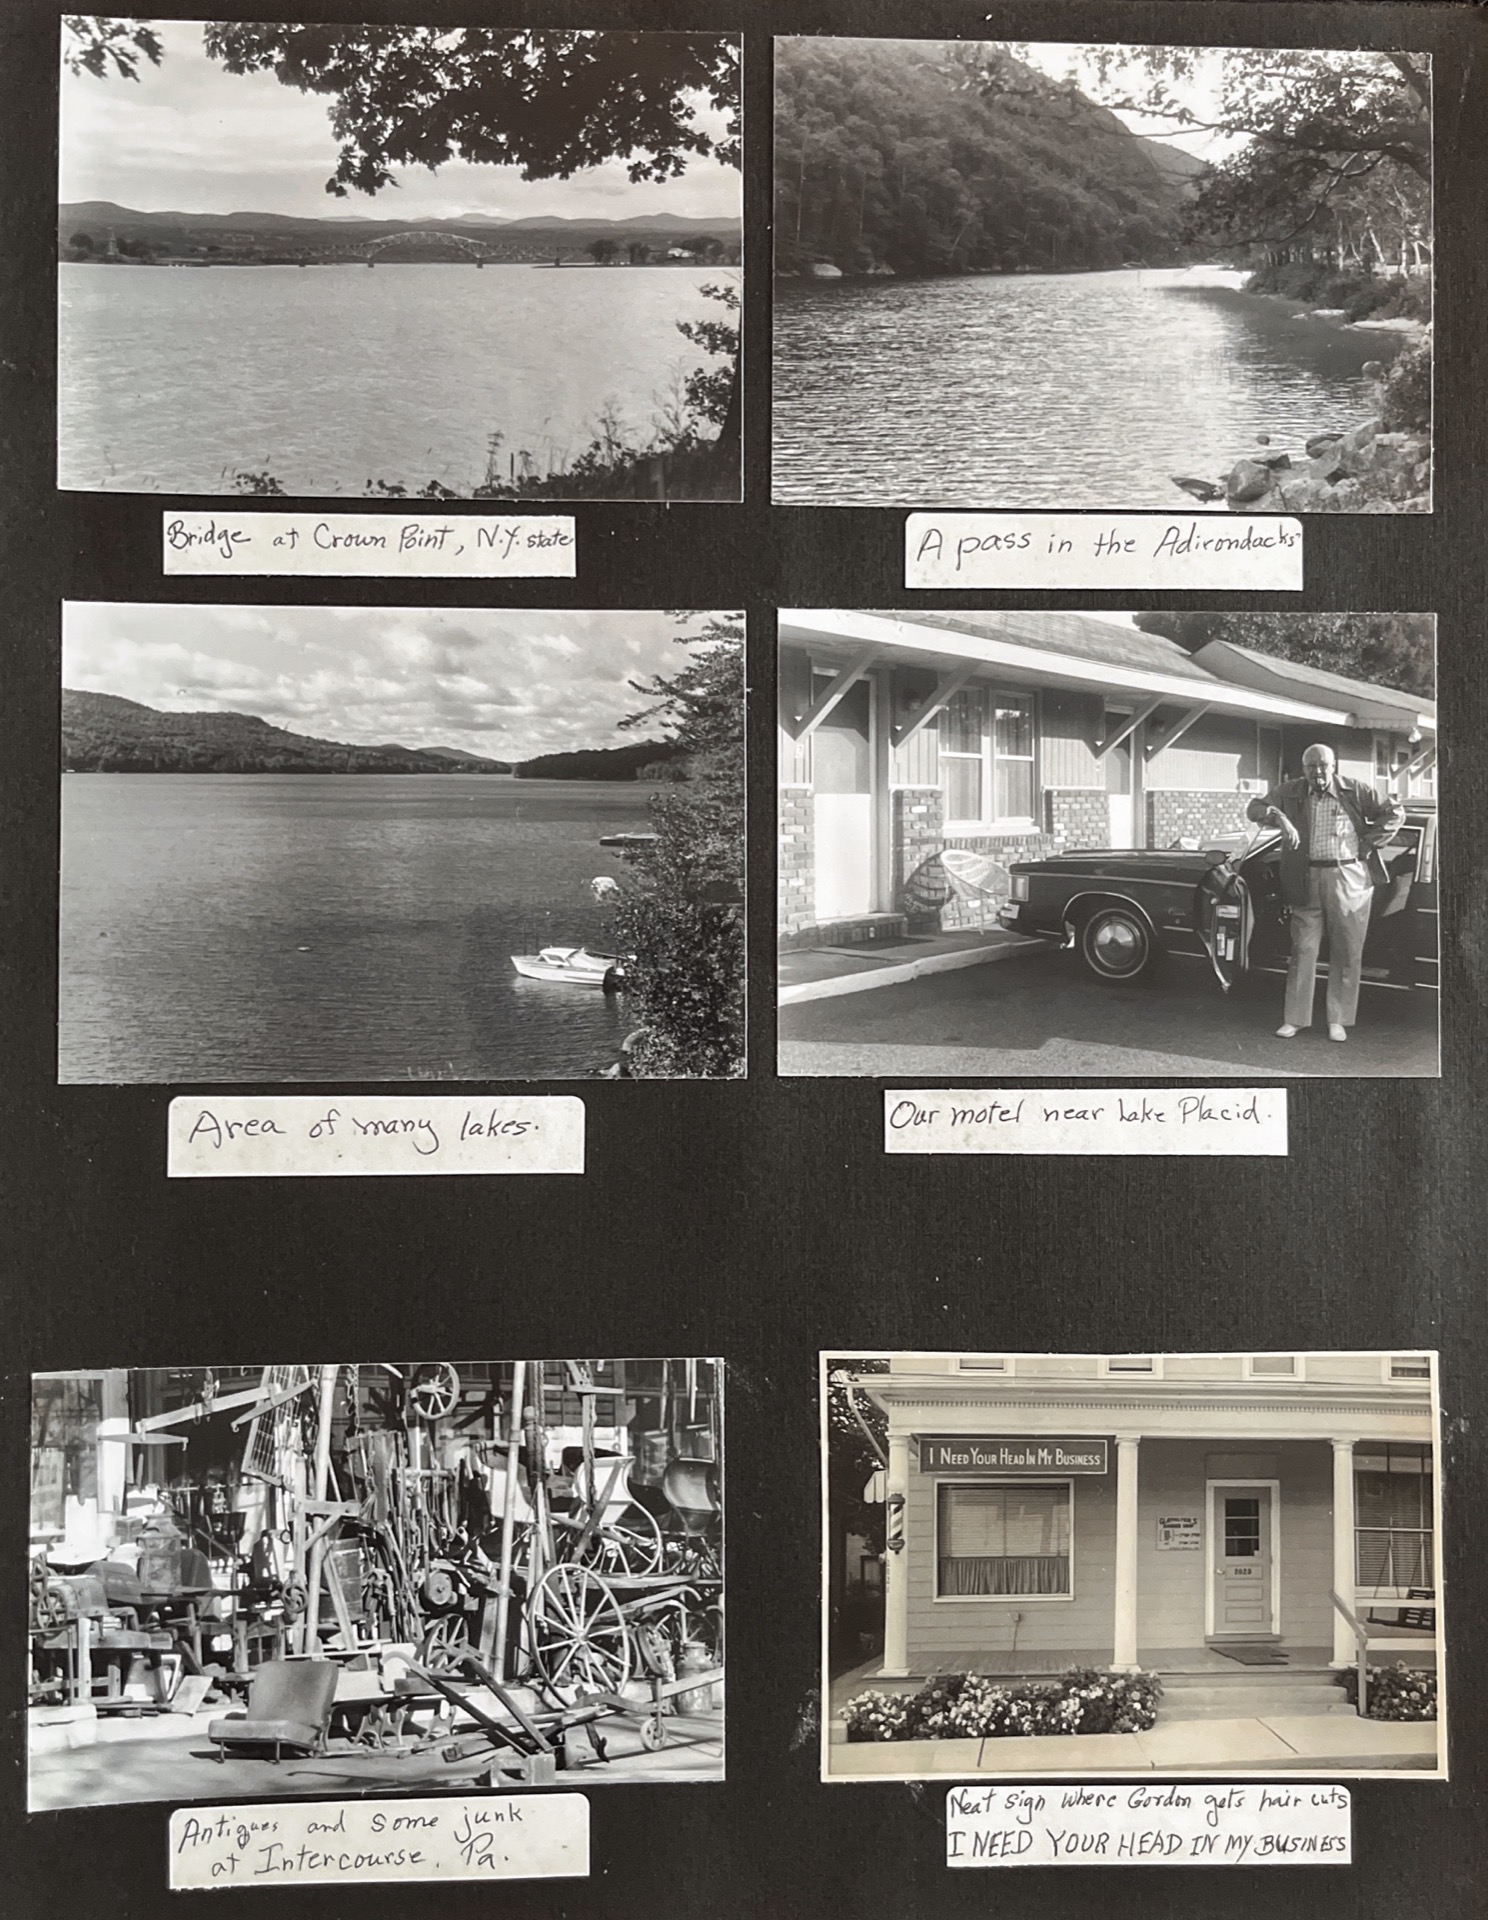 Bridge at Crown Point, N.Y. state
A pass in the Adirondacks
Area of many lakes.
Our motel near Lake Placid.
Antiques and some junk
at Intercourse, Pa.
I NEED YOUR HEAD IN MY BUSINESS
2023
Neat sign where Gordon gets hair cuts
I NEED YOUR HEAD IN MY BUSINESS